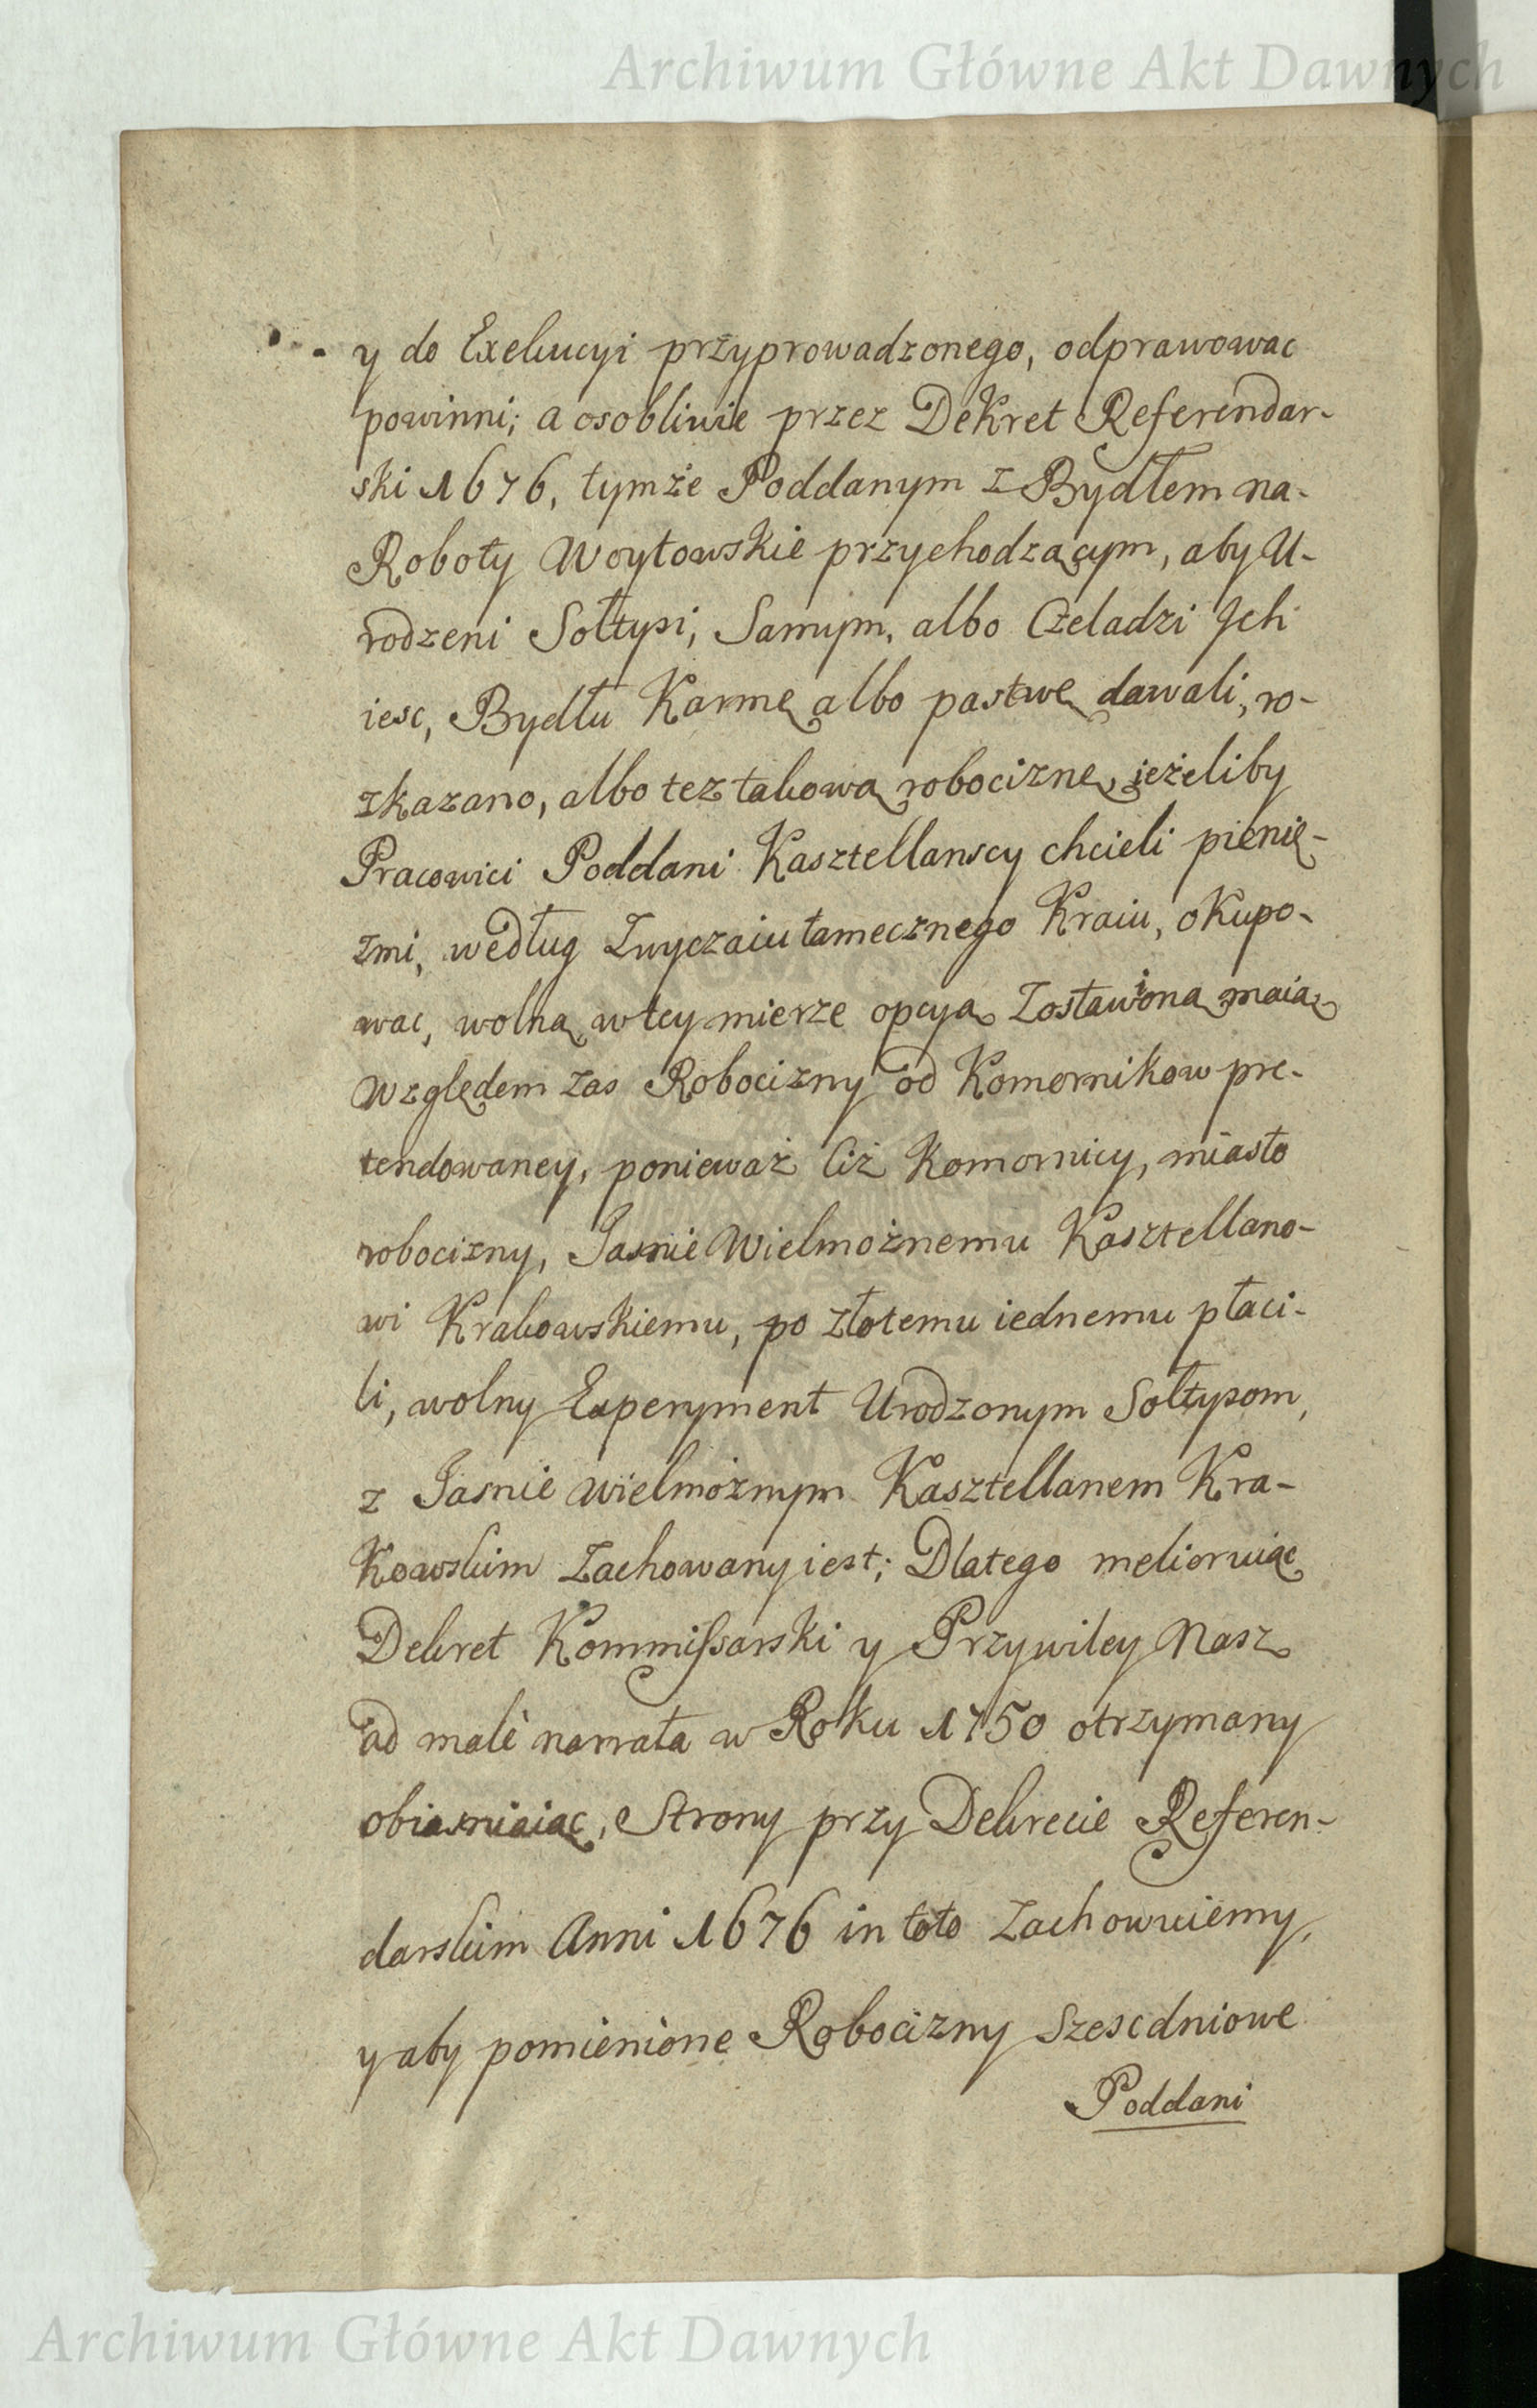 Archiwum Główne Akt Dawnych
y do Exekucyi przyprowadzonego, odprawowac
powinni; a osobliwie przez Dekret Referendar-
ski 1676, tymże Poddanym z Bydłem na-
Roboty Woytowskie przychodzącym, aby U-
rodzeni Sołtysi, Samym, albo Czeladzi Ich
iesc, Bydłu Karmę albo pastwę dawali, ro-
zkazano, albo tez takową robociznę, ieżeliby
Pracowici Poddani Kasztellanscy chcieli pienię-
zmi, według Zwyczaiu tamecznego Kraiu, okupo-
wac, wolną w tey mierze opcyą Zostawioną maią
Względem zas Robocizny od Komornikow pre-
tendowaney, ponieważ Ciż Komornicy, miasto
robocizny, Jasnie Wielmożnemu Kasztellano-
wi Krakowskiemu, po złotemu iednemu płaci-
li, wolny Experyment Urodzonym Sołtysom,
z Jasnie Wielmożnym Kasztellanem Kra-
kowskim Zachowany iest; Dlatego melioruiąc
Dekret Kommissarski y Przywiley Nasz
ad malè narrata w Roku 1750 otrzymany
obiasniaiąc, Strony przy Dekrecie Referen-
darskim Anni 1676 in toto Zachowuiemy,
y aby pomienione Robocizny Szescdniowe
Poddani
Archiwum Główne Akt Dawnych